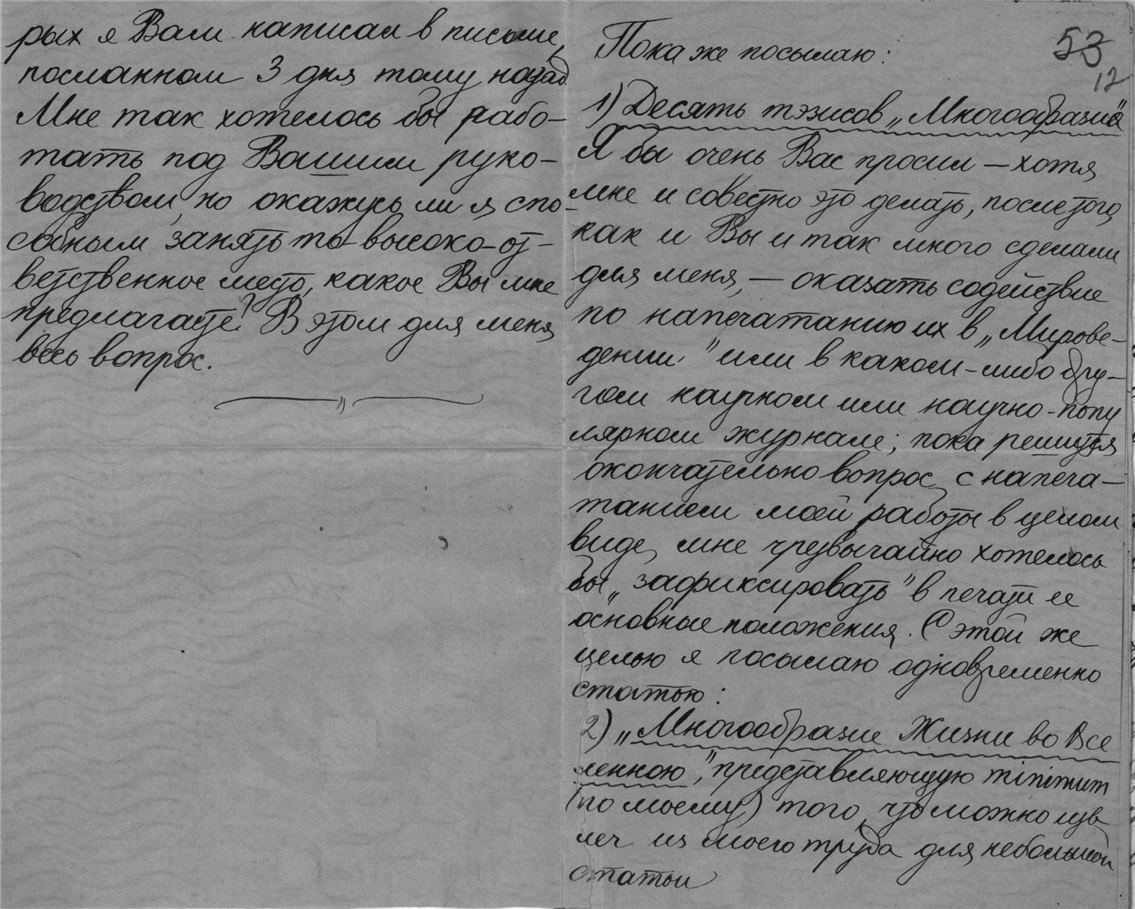 рых я Вам написал в письме,
посланном 3 дня тому назад.
Мне так хотелось бы рабо-
тать под Вашим руко-
водством, но окажусь ли я спо-
собным занять то высоко-от-
ветственное место, какое Вы мне
предлагаете? В этом для меня
весь вопрос.
53
12
Пока же посылаю:
1) Десять тэзисов „Многообразия"
Я бы очень Вас просил – хотя
мне и совестно это делать, после того,
как и Вы и так много сделали
для меня, – оказать содействие
по напечатанию их в „Мирове-
дении" или в каком-либо дру-
гом научном или научно-попу
лярном журнале; пока решится
окончательно вопрос с напеча-
танием моей работы в целом
виде, мне чрезвычайно хотелось
бы „зафиксировать" в печати ее
основные положения. С этой же
целью я посылаю одновременно
статью:
2) „Многообразие Жизни во Все
ленною", представляющую minimum
(по моему) того, что можно изв
леч из моего труда для небольшой
статьи